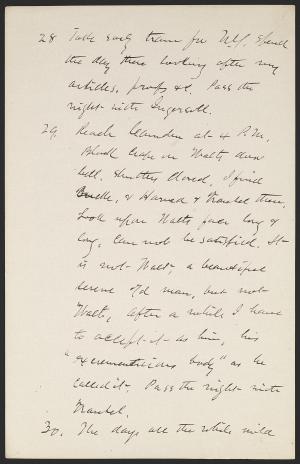 28 Take early train for N.Y. Spend
the day there looking after my
articles, proofs &c. Pass the
night with Ingersoll.
29 Reach Camden at 4 P.M.
Black crape on Walts door
bell. Shutters closed, I find
Bucke, & Harned & Traubel there.
Look upon Walts face long &
long. Can not be satisfied. It
is not Walt, a beautiful
serene old man, but not
Walt, after a while I have
to accept it as him, his
"excrementicious body" as he
called it. Pass the night with
Traubel.
30. The days all the while mild